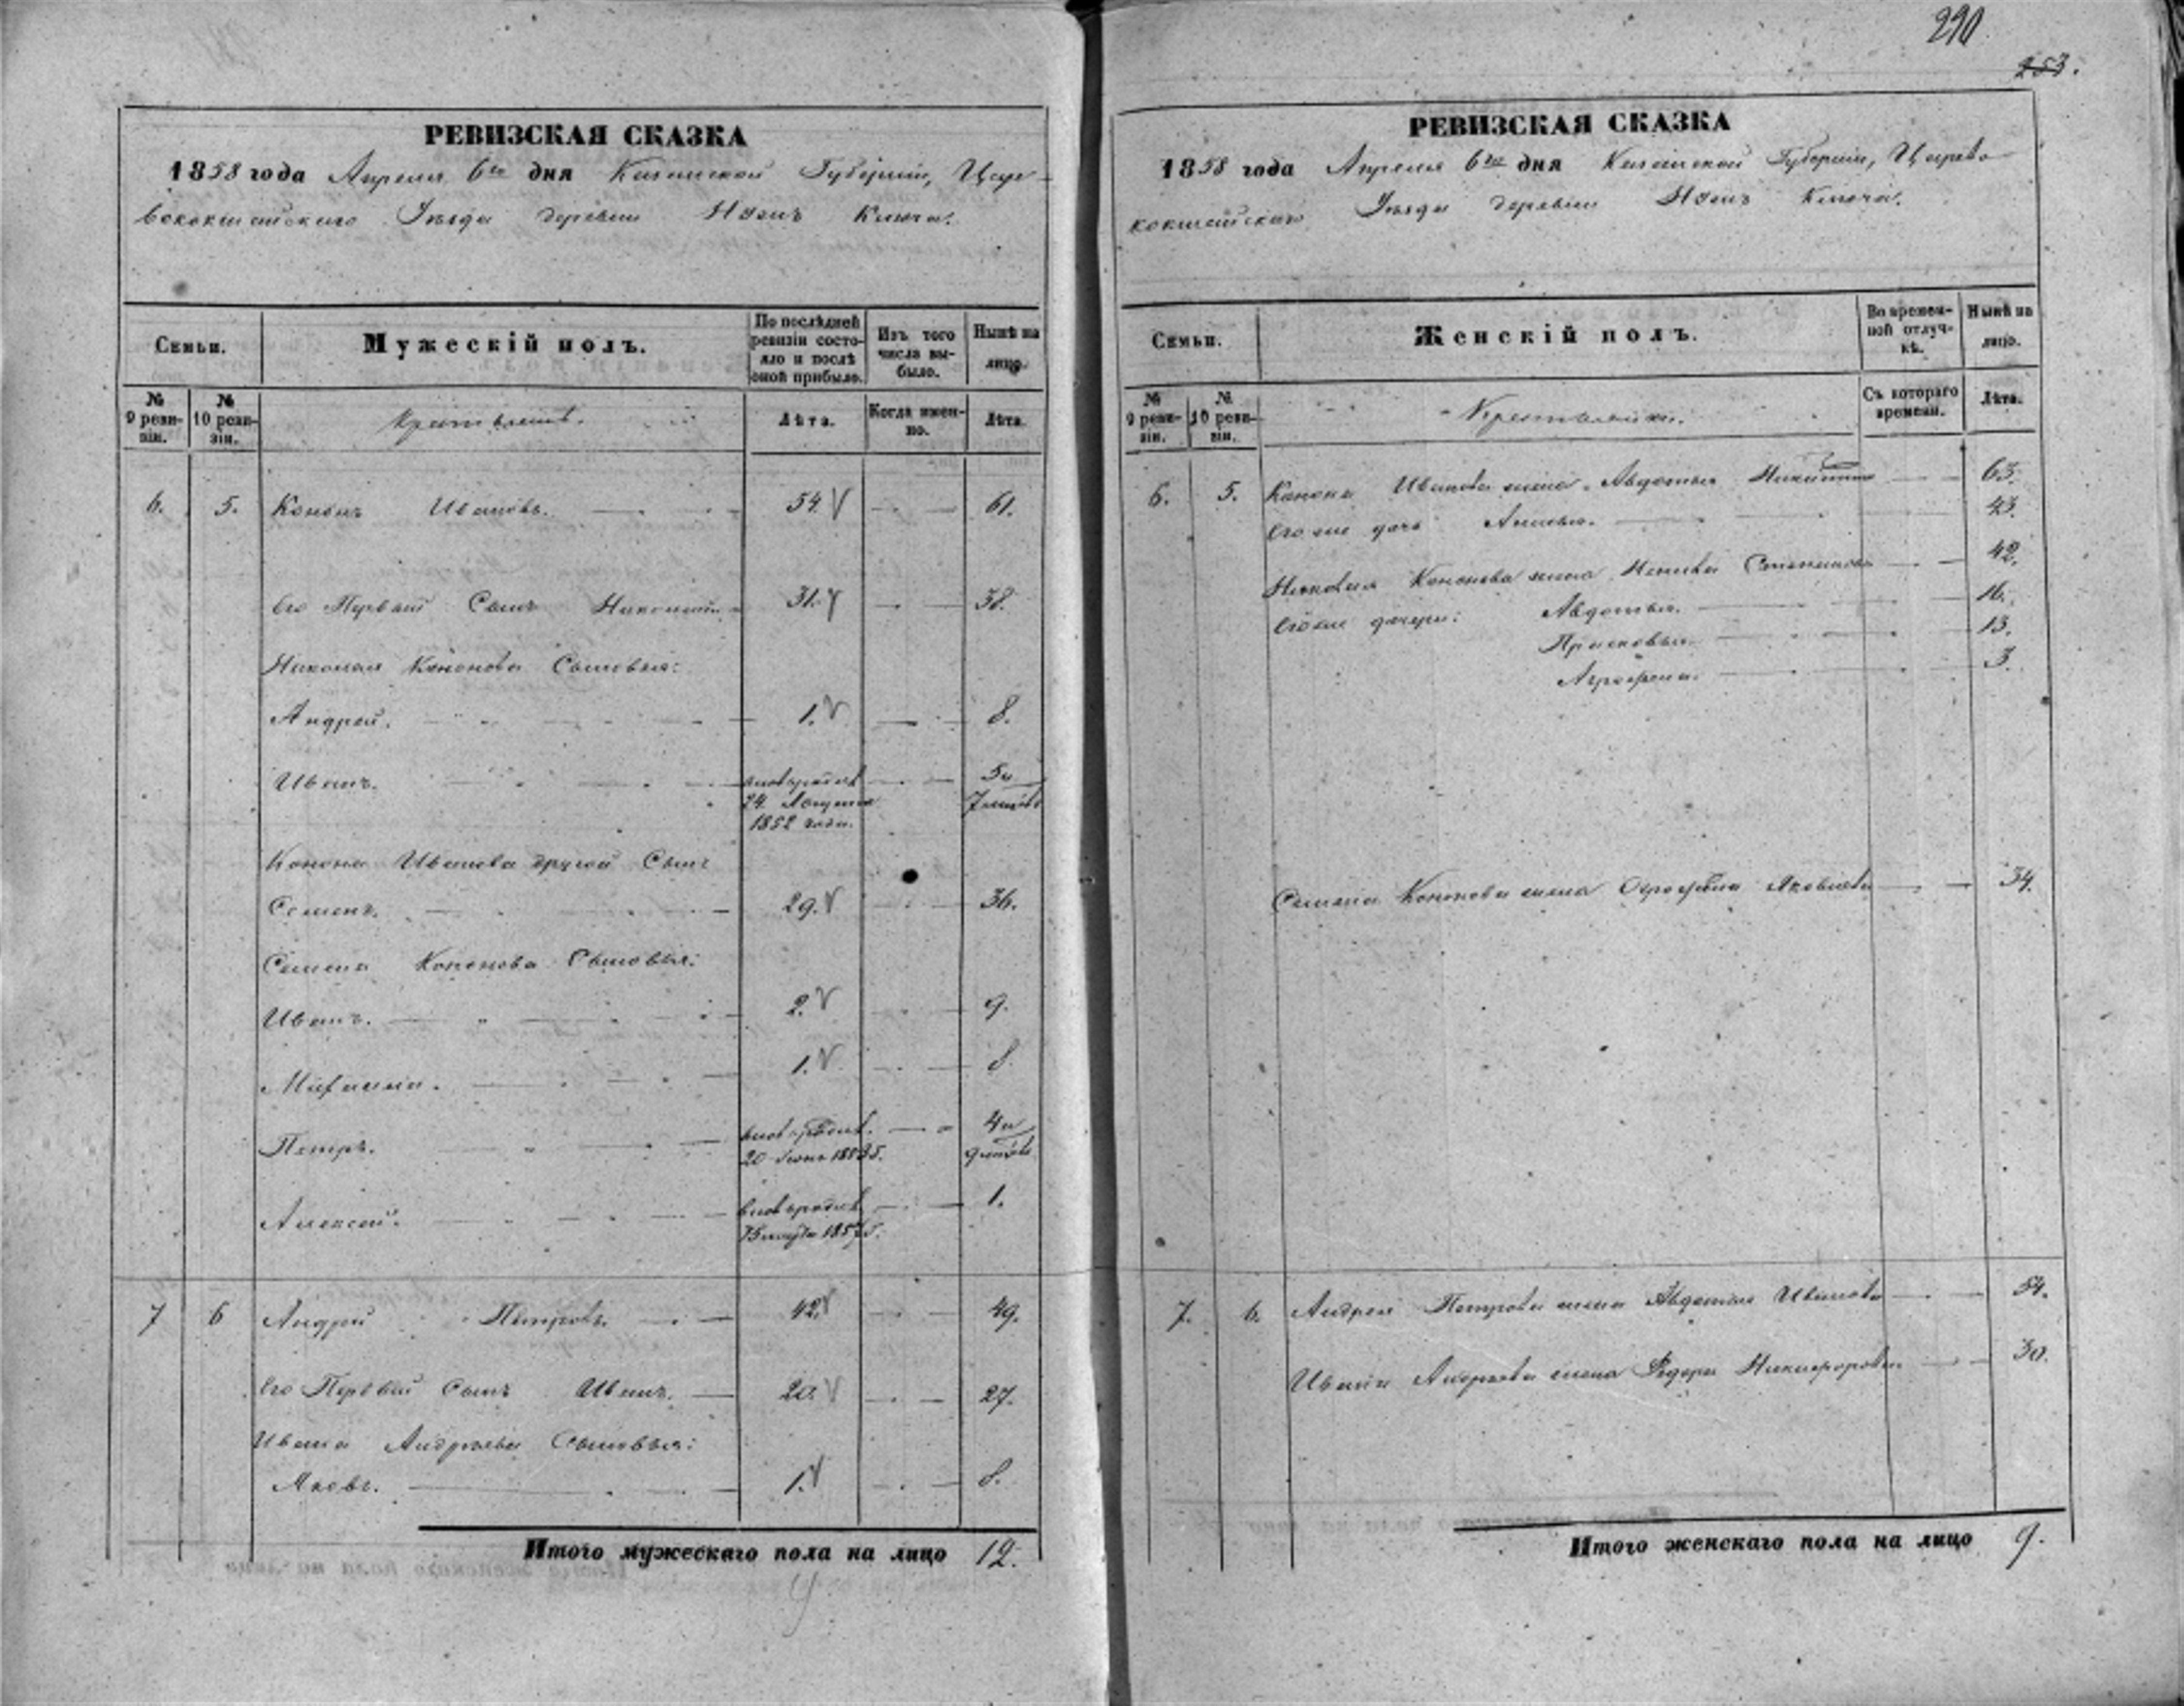 РЕВИЗСКАЯ СКАЗКА
1858 года Апреля 6го дня Казанской Губерніи, Царе-
вококшайскаго Уѣзда деревни Ключа.
Семьи.
Мужескій полъ.
По послѣдней ревизіи состо-
яло и послѣ
оной прибыло.
Изъ того
числа вы-
было.
Нынѣ на
лицо.
№
9 реви-
зіи.
№
10 реви-
зіи.
Лѣта.
Когда имен-
но.
Лѣта.
6. 5. Кононъ Ивановъ. 54. 61.
Его Первый Сынъ Николай. 31. 38.
Николая Кононова Сыновья:
Андрей. 1. 8.
Иванъ. 5 и
24 Августа 7 мѣсяц
1852 года.
Конона Иванова другой Сынъ
Семенъ. 29. 36.
Семена Кононова Сыновья:
Иванъ. 2. 9.
1. 8
Петръ. 4 и
9 мѣсяц
Алексей. 1.
7 6 Андрей Петровъ. 42. 49.
Его Первый Сынъ Иванъ. 20. 27.
Ивана Андреева Сыновья:
Яковъ. 1. 8.
Итого мужескаго пола на лицо 12.
290
253.
РЕВИЗСКАЯ СКАЗКА
1858 года Апреля 6го дня Казанской Губерніи, Царево-
кокшайскаго Уѣзда деревни Ключа.
Семьи.
Женскій полъ.
Во времен-
ной отлуч-
кѣ.
Нынѣ на
лицо.
№
9 реви-
зіи.
№
10 реви-
зіи.
Съ котораго
времени.
Лѣта.
6. 5. Конона Иванова жена Авдотья 63.
Его же дочь 43.
Кононова жена Степанова 42.
Его же дочери: Авдотья. 16.
Прасковья. 13.
3.
Семена Кононова жена Яковлева 34.
7. 6. Андрея Петрова жена Авдотья Иванова 54.
Ивана Андреева жена Федора Никифорова 30.
Итого женскаго пола на лицо 9.